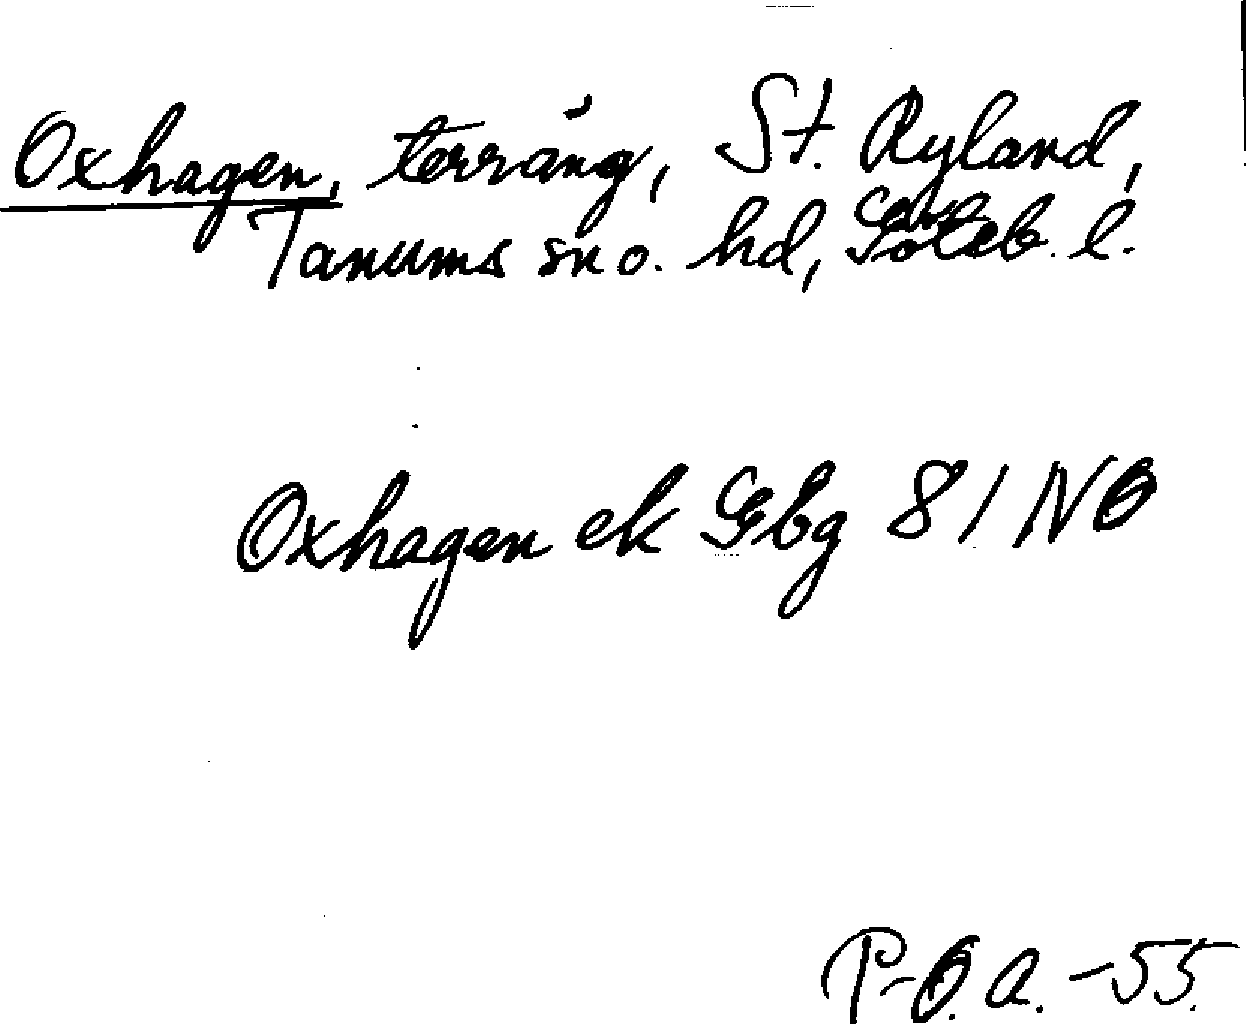 Oxhagen, terräng, St. Ryland,
Tanums sn o. hd, Göteb. l.
Oxhagen ek Gbg 81 NO
P-O. A. -55.